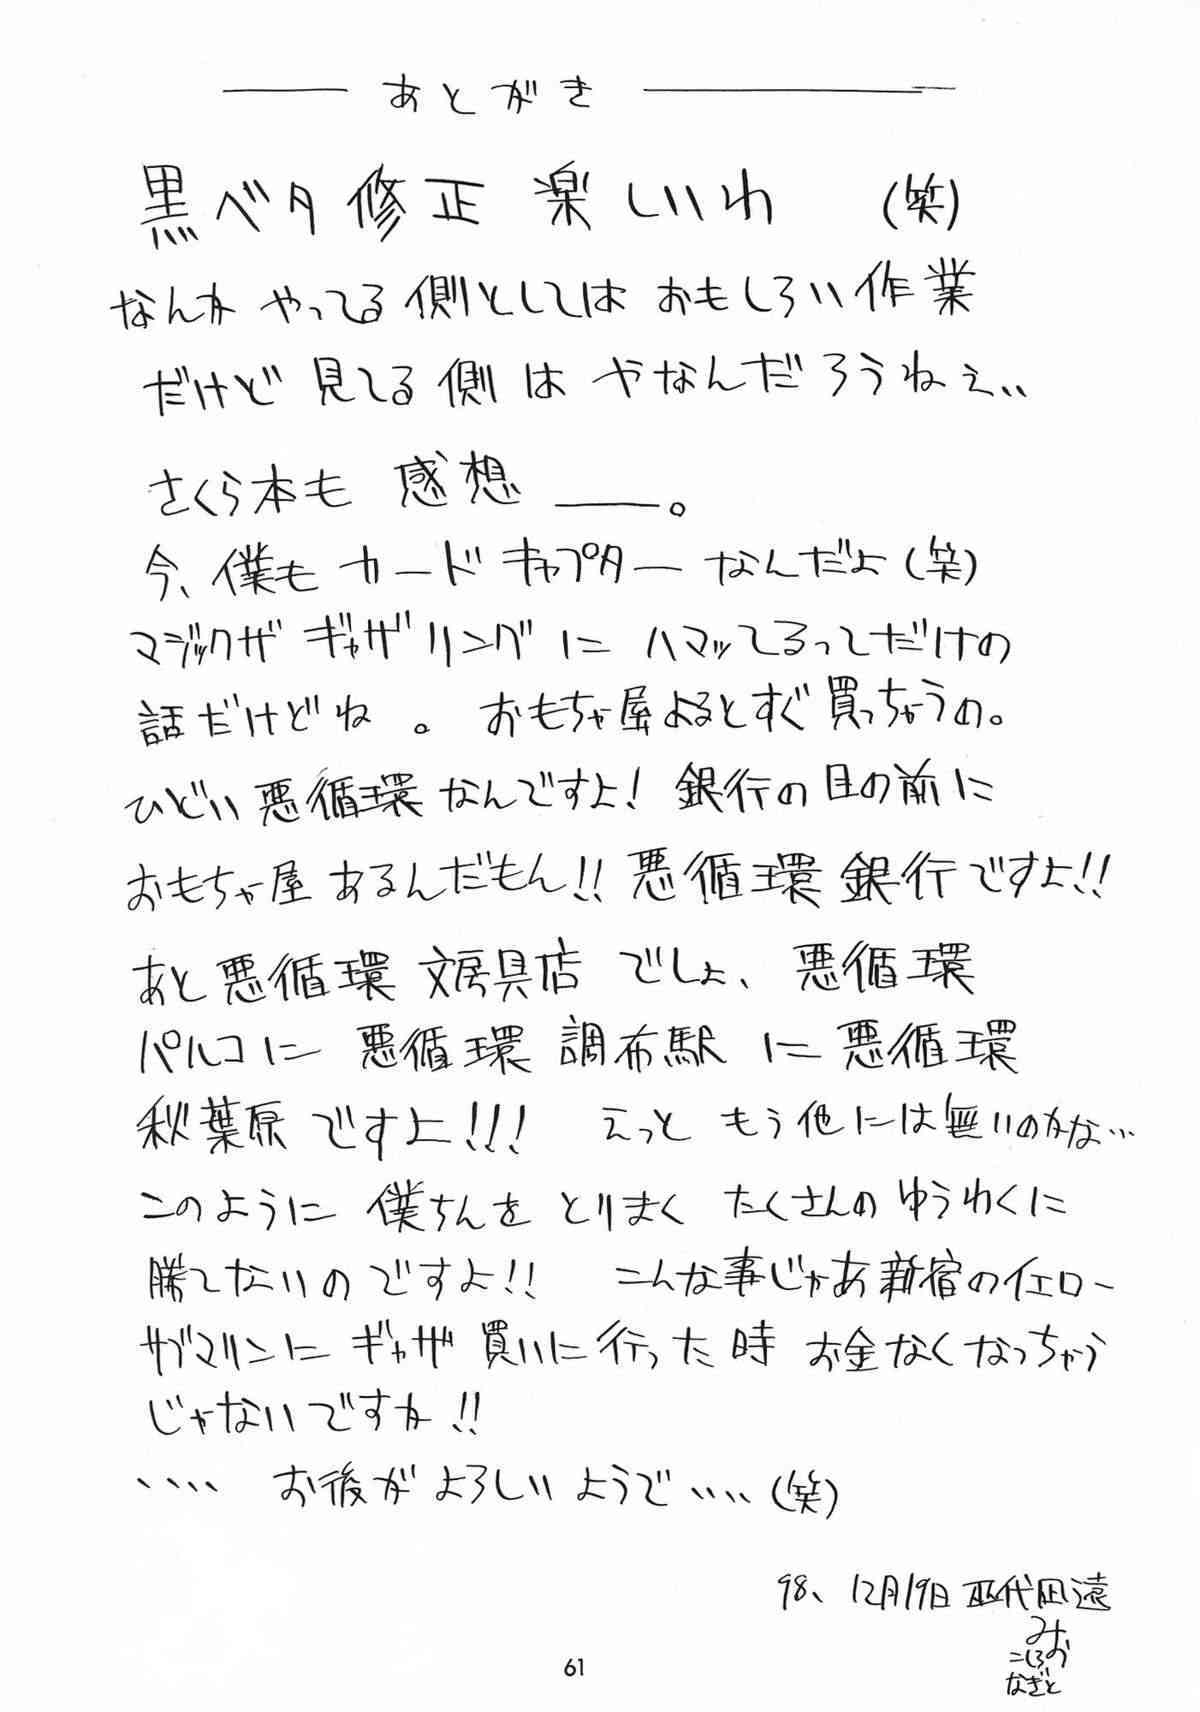 あとがき
黒ベタ修正 楽しいわ (笑)
なんか やってる側としては おもしろい作業
だけど 見てる側は やなんだろうねぇ、、
さくら本も 感想 ――。
今、僕も カードキャプターなんだよ(笑)
マジックザ ギャザリングに ハマッてるってだけの
話だけどね 。 おもちゃ屋よるとすぐ買っちゃうの。
ひどい悪循環なんですよ! 銀行の目の前に
おもちゃ屋あるんだもん!! 悪循環銀行ですよ!!
あと悪循環文房具店でしょ、悪循環
パルコに 悪循環調布駅に悪循環
秋葉原ですよ!!! えっと もう他には無いのかな…
このように 僕ちんを とりまく たくさんの ゆうわくに
勝てないのですよ!! こんな事じゃあ新宿のイエロー
サブマリンに ギャザ 買いに行った時 お金なくなっちゃう
じゃないですか!!
、、、、 お後がよろしいようで、、、、(笑)
98、12月19日 代凪遠
みお
こしろ
なぎと
61